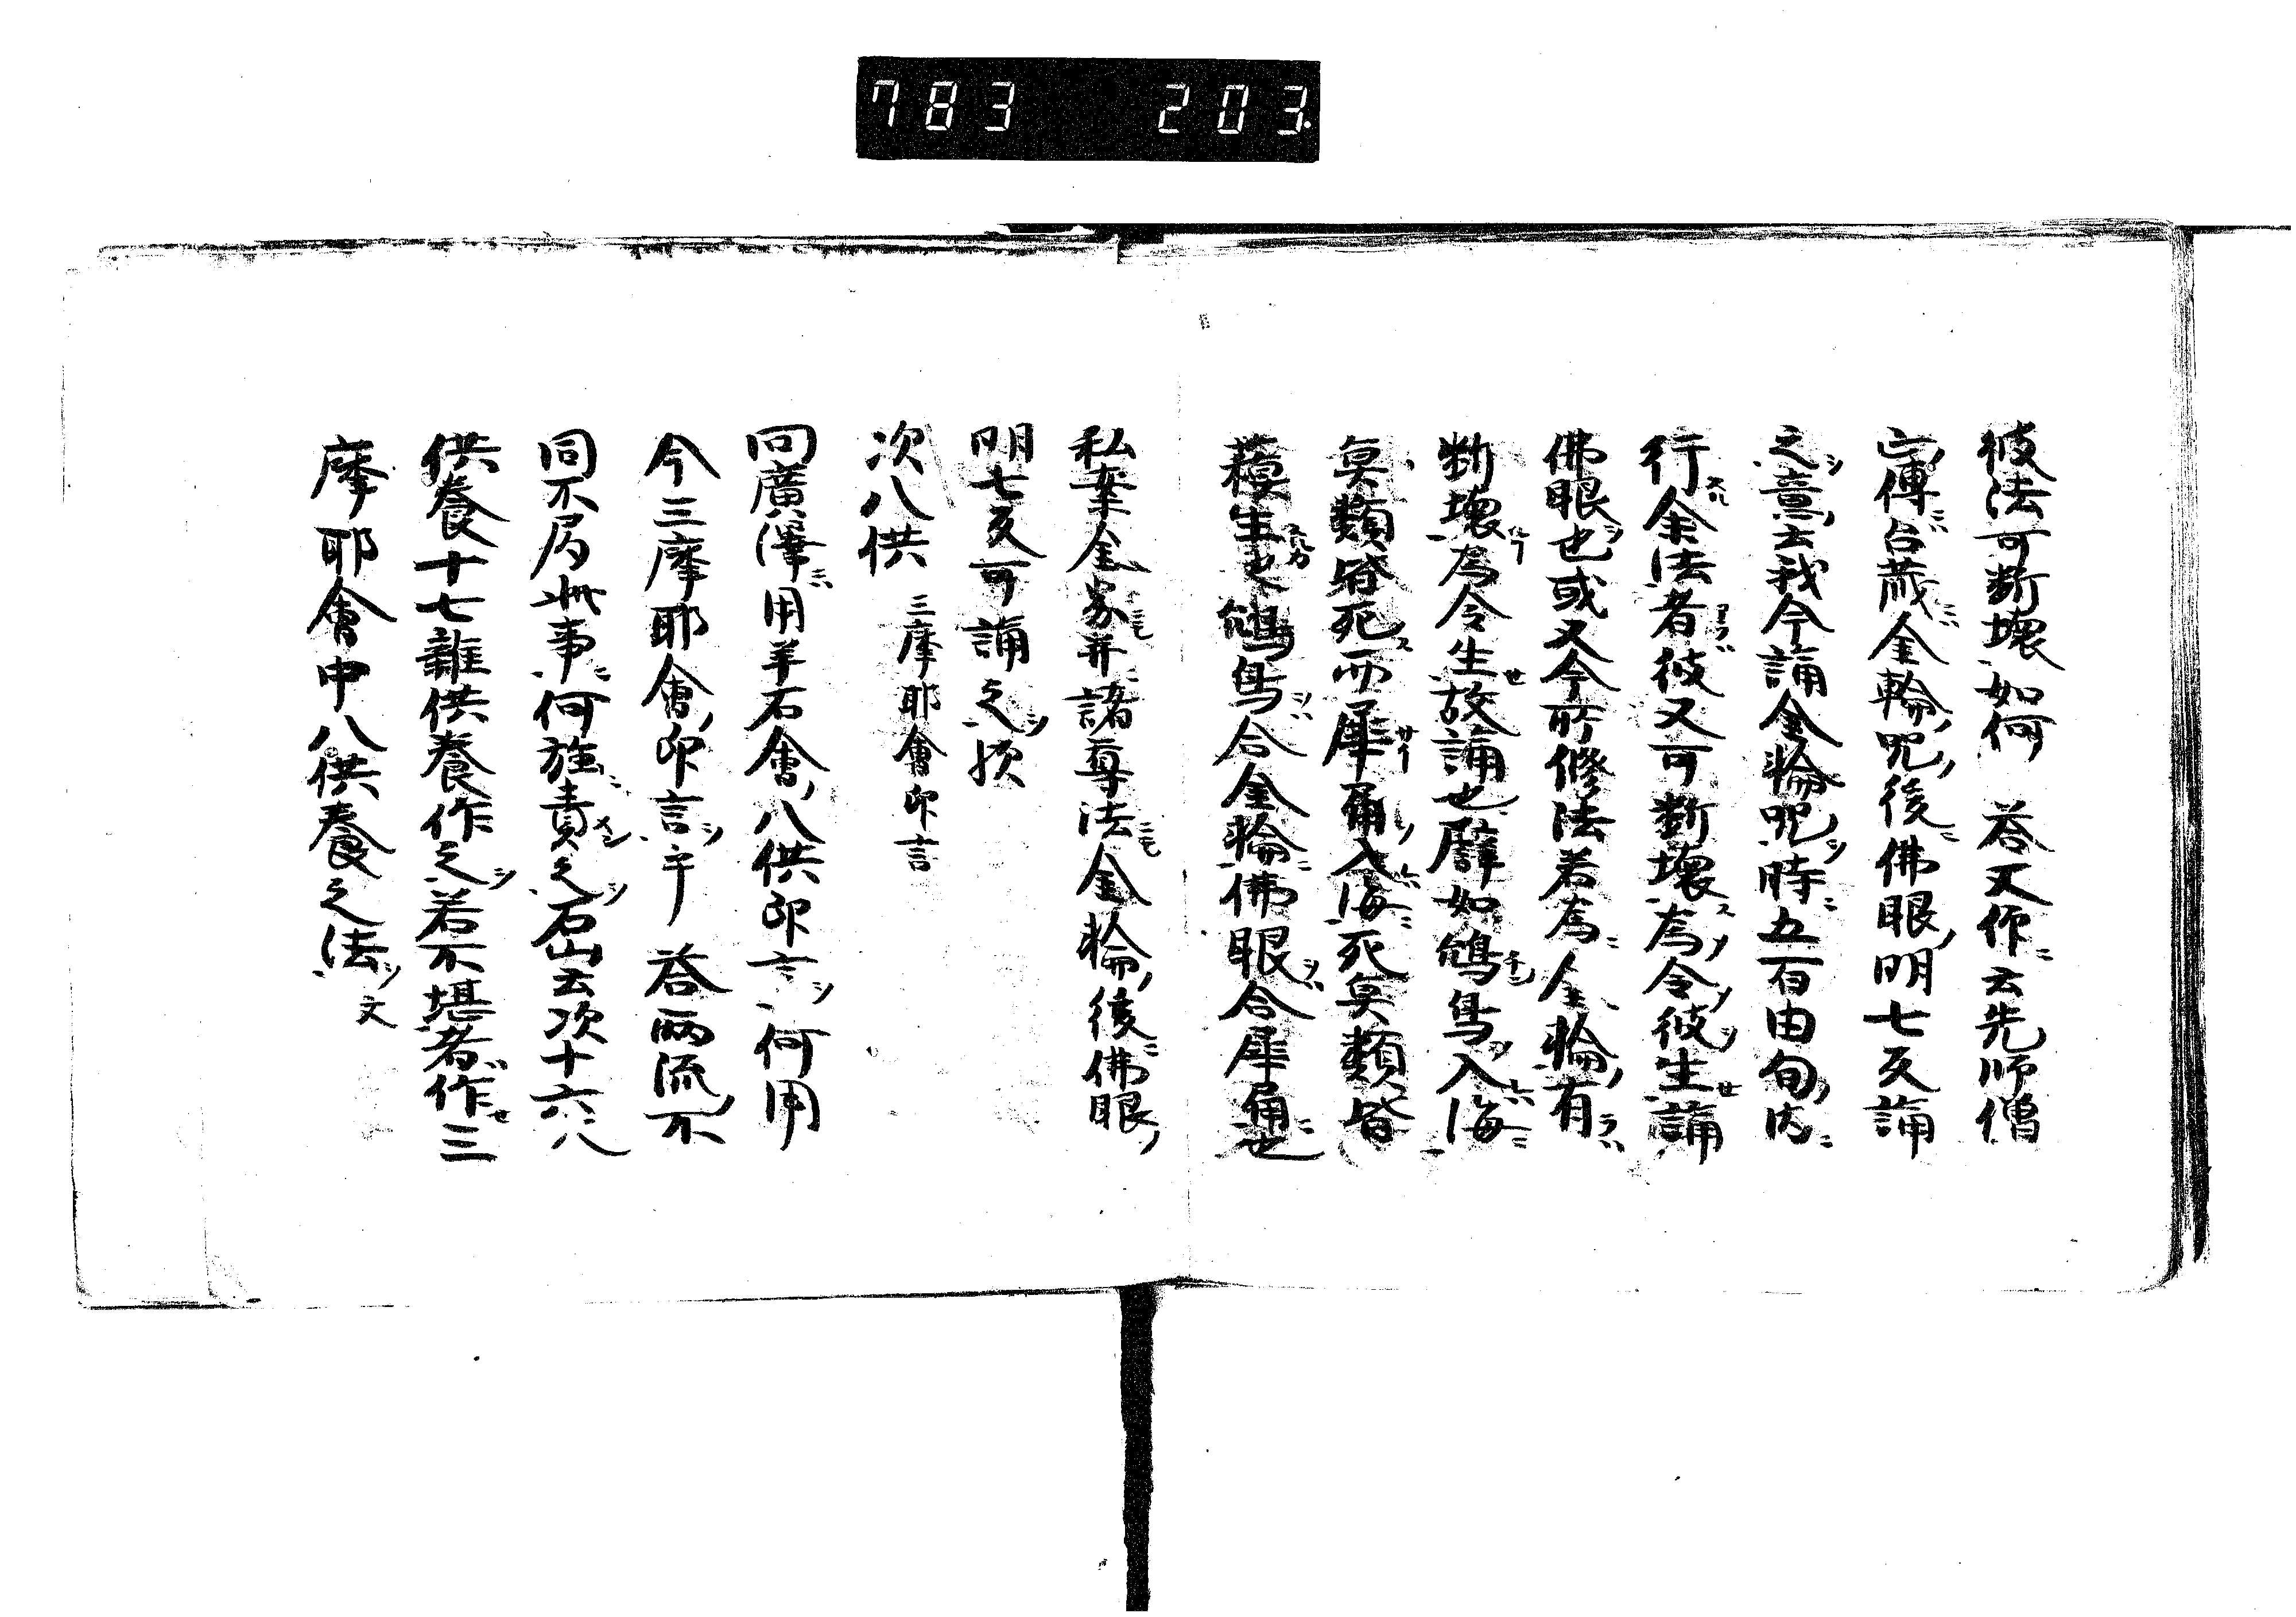 783 203
彼法可断壊如何 答又作云先师僧
正傳台蔵金輪咒後佛眼明七反誦
之意云我今誦金輪咒時五百由旬内
行余法者彼又可断壊為令彼生誦
佛眼也或又今所修法若為金輪有
断壊為令生故誦也譬如鴆鳥入海
魚類皆死而犀角入海死魚類皆
蘓生也鴆鳥合金輪佛眼合犀角也
私案金界并諸尊法金輪後佛眼
明七反可誦之
次八供 三摩耶會印言
問廣澤用羊石會八供印言何用
今三摩耶會印言乎 答両流不
同不局此事何強責之石山云次十六八
供養十七雜供養作之若不堪者作三
摩耶會中八供養之法文